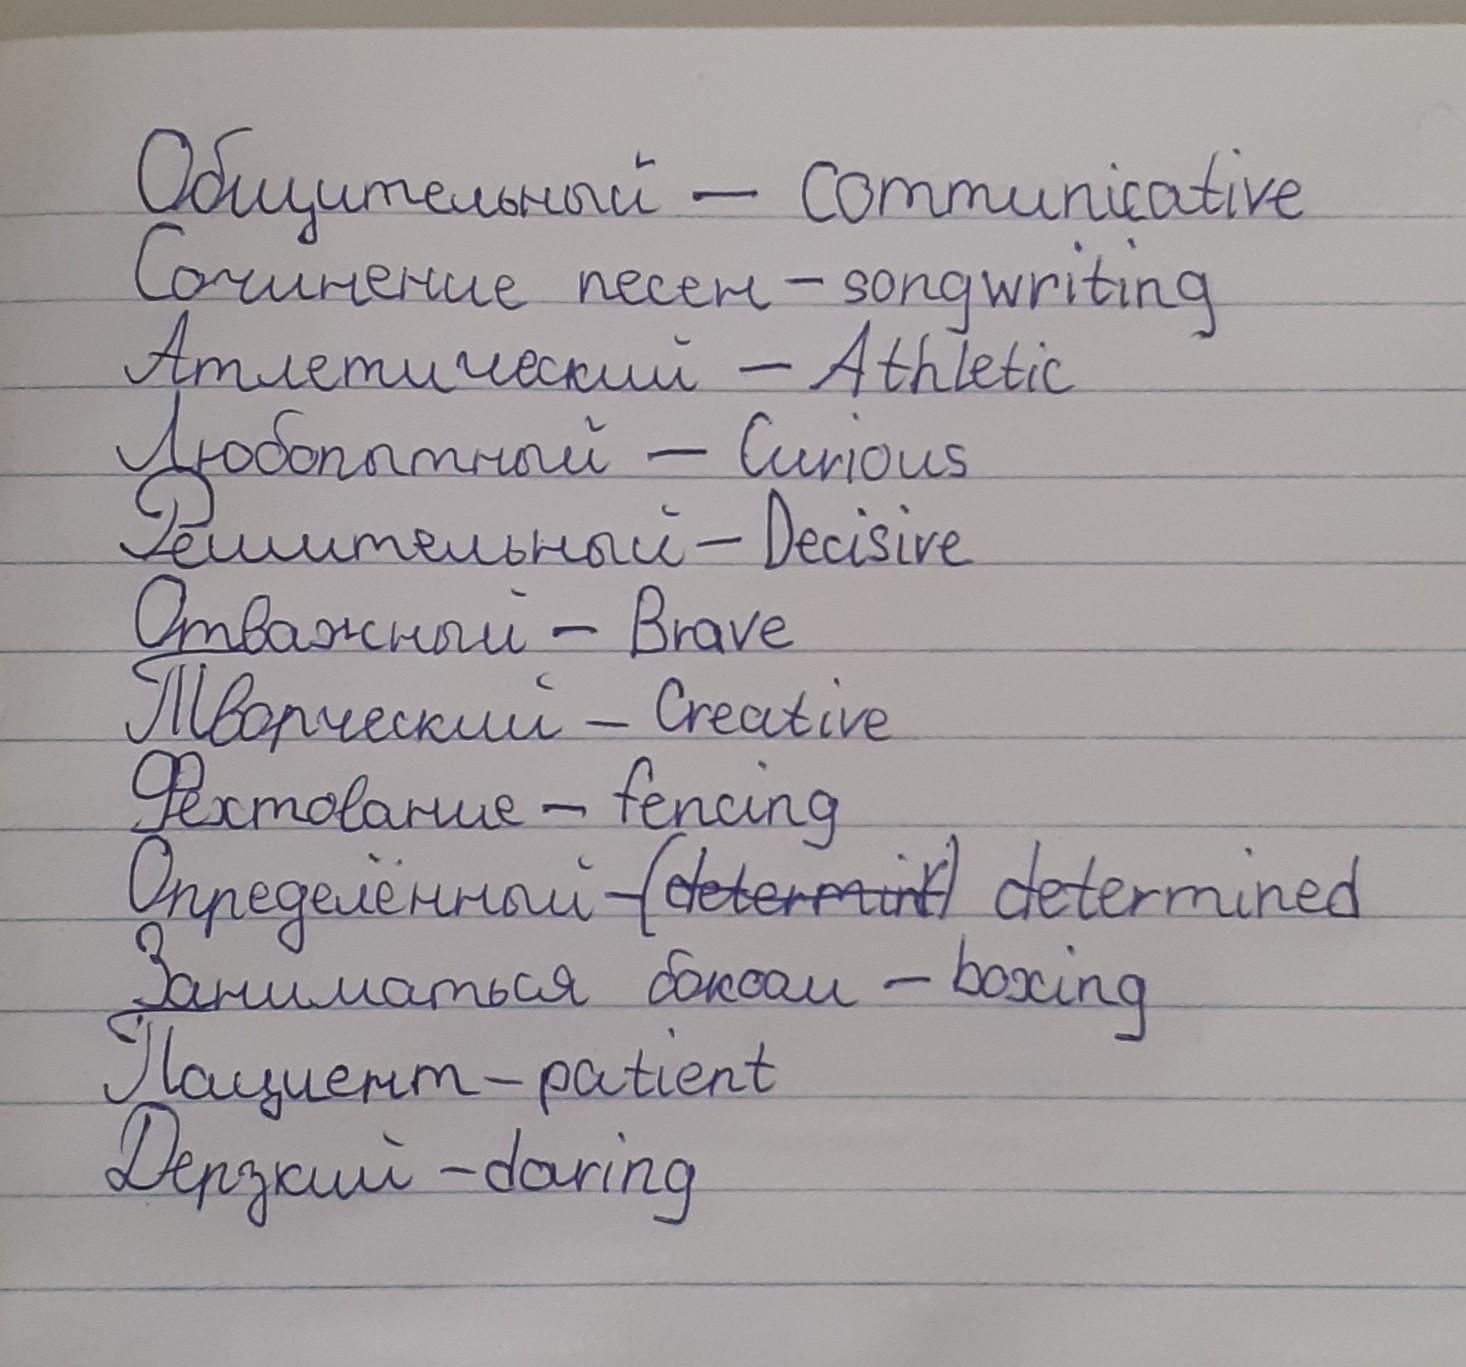 Общительный — communicative
Сочинение песен – songwriting
Атлетический – Athletic
Любопытный — Curious
Решительный – Decisive
Отважный – Brave
Творческий – Creative
Фехтование – fencing
Определённый – (determint) determined
Заниматься боксом – boxing
Пациент – patient
Дерзкий – daring